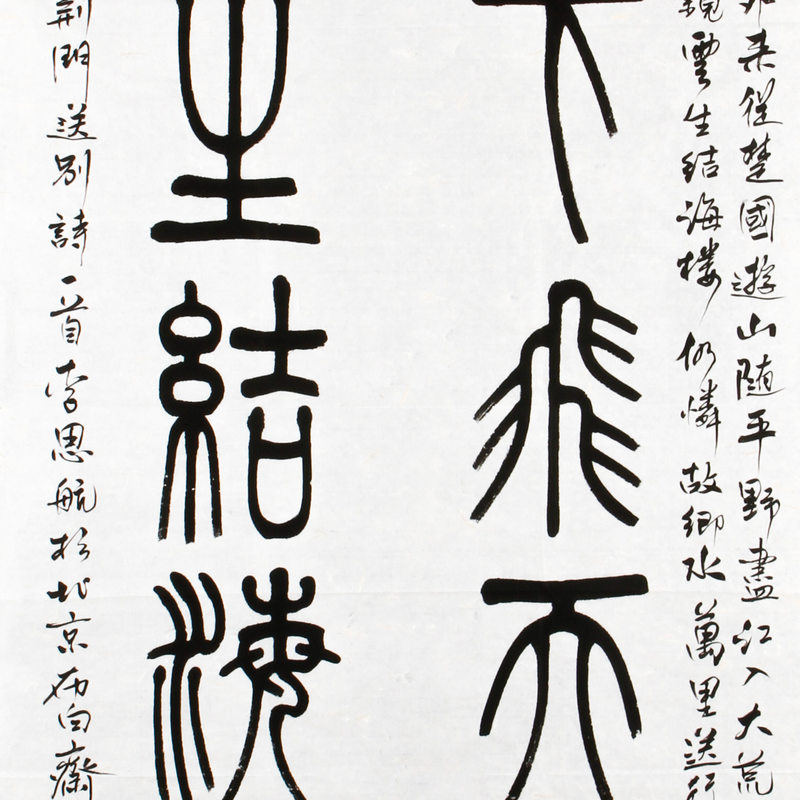 外來從楚國遊山隨平野盡江入大荒
鏡雲生結海樓仍憐故鄉水萬里送行
下飛天
生結海
荊門送別詩一首李思航於北京布白齋